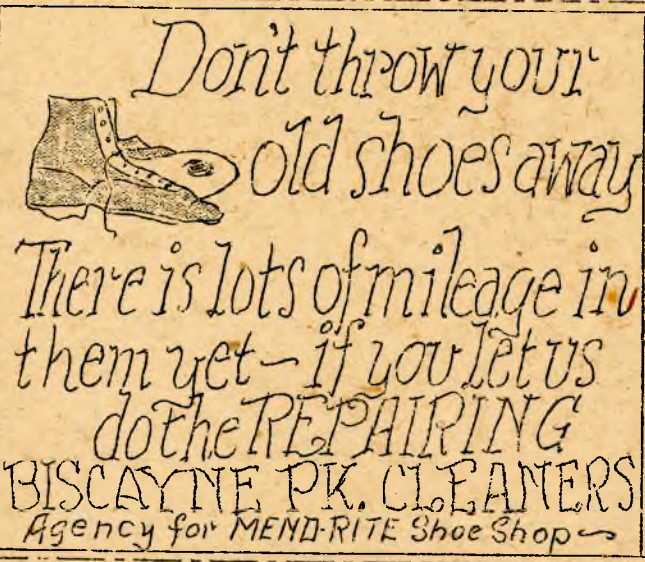 Don't throw your
old shoes away
There is lots of mileage in
them yet – if you let us
do the REPAIRING
BISCAYNE PK. CLEANERS
Agency for MEND-RITE Shoe Shop